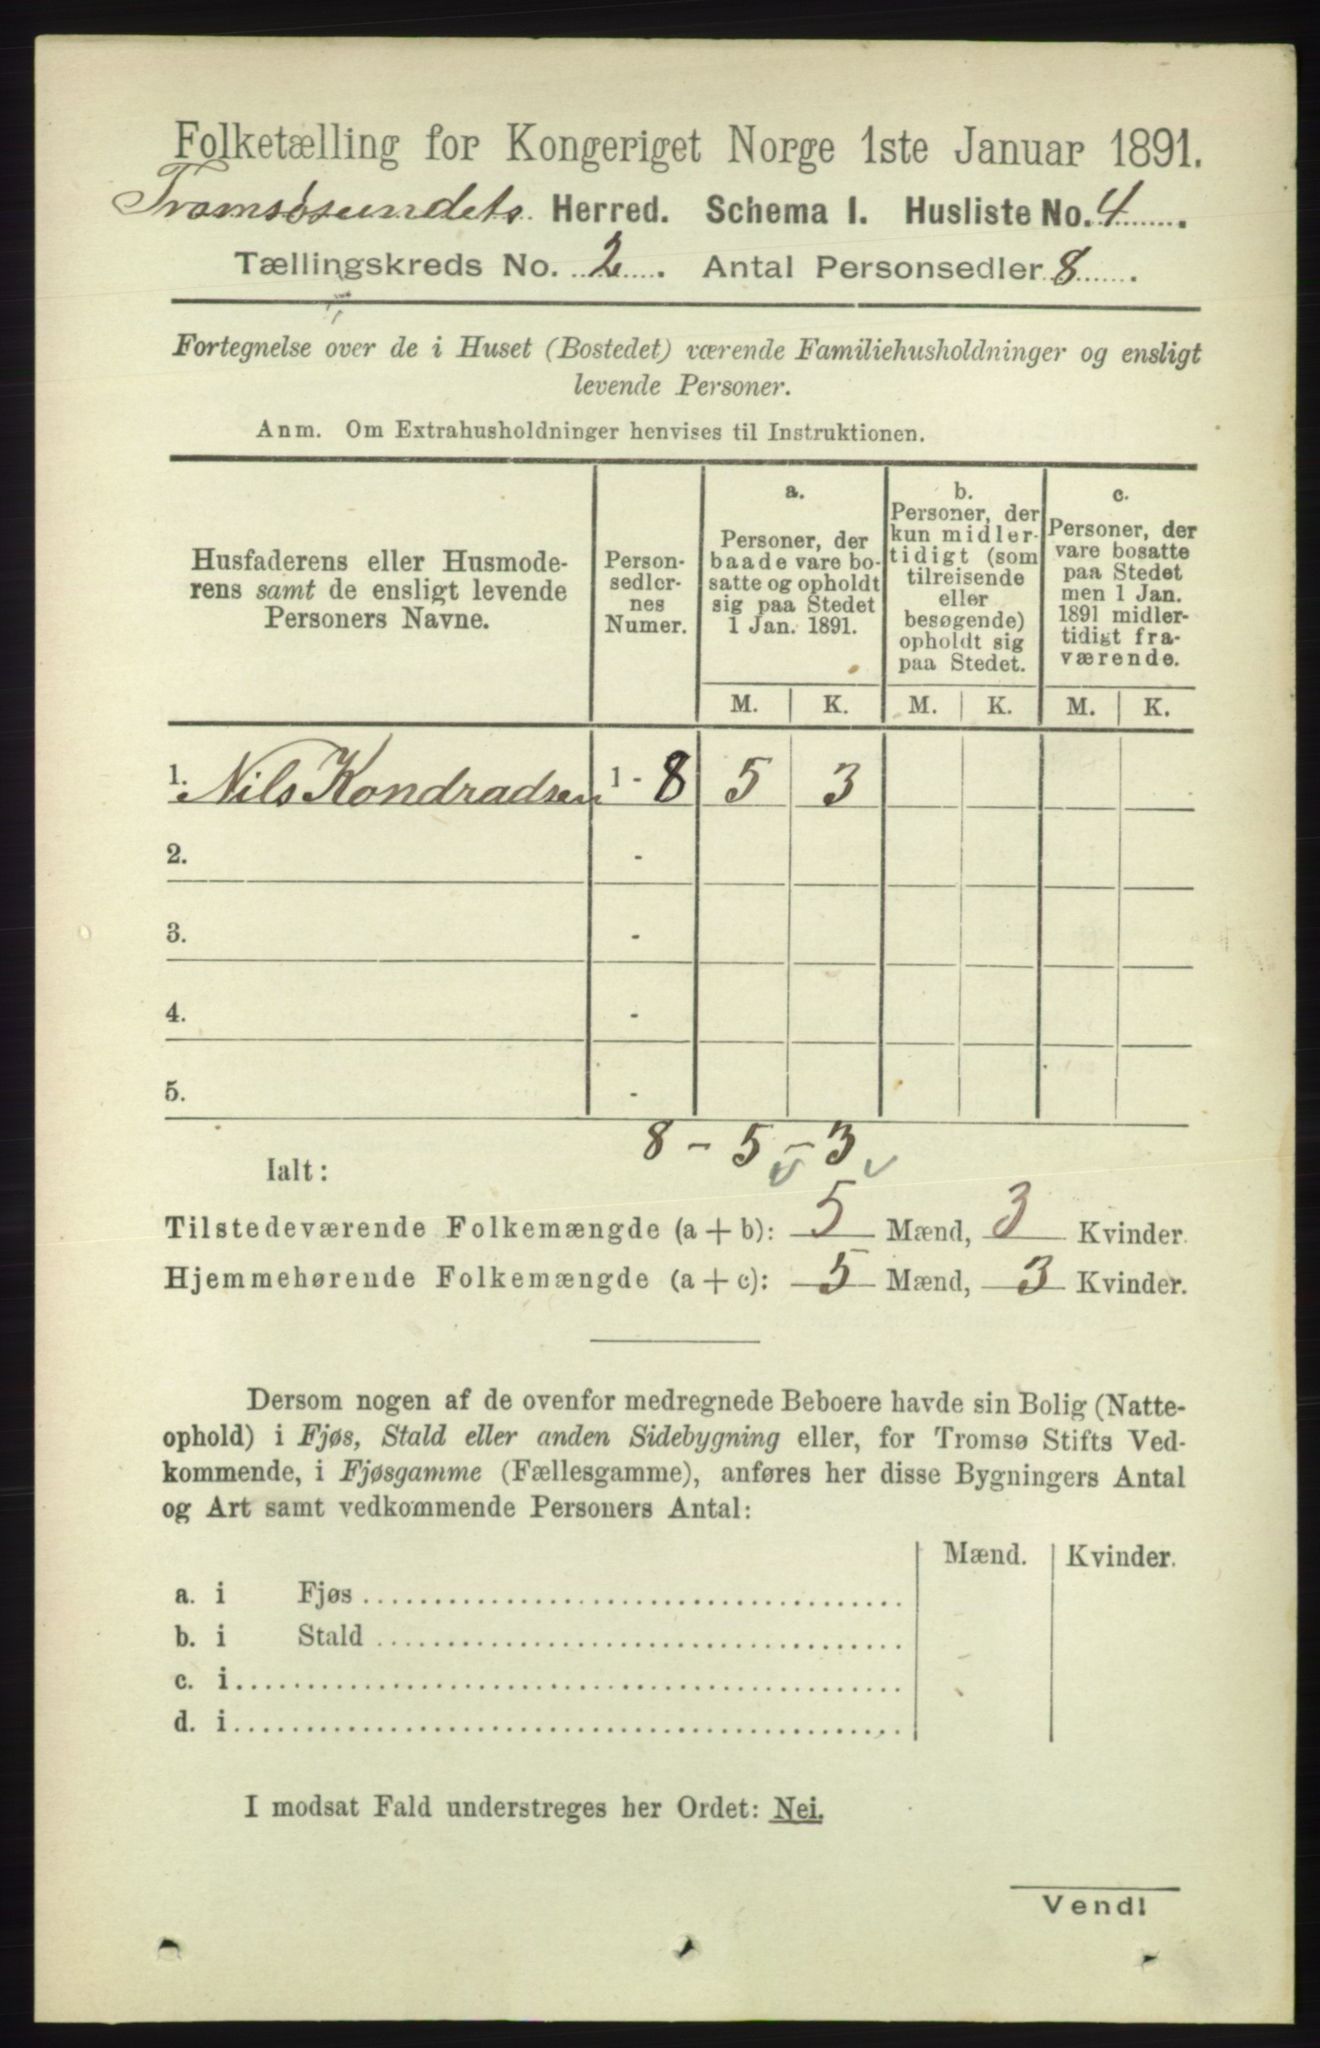 Folketælling for Kongeriget Norge 1ste Januar 1891.
Tromsøsundets Herred. Schema I. Husliste No. 4
Tællingskreds No. 2. Antal Personsedler 8.
Fortegnelse over de i Huset (Bostedet) værende Familiehusholdninger og ensligt
levende Personer.
Anm. Om Extrahusholdninger henvises til Instruktionen.
Husfaderens eller Husmode-
rens samt de ensligt levende
Personers Navne.
Person-
sedler-
nes
Numer.
a.
Personer, der
baade vare bo-
satte og opholdt
sig paa Stedet
1 Jan. 1891.
b.
Personer, der
kun midler-
tidigt (som
tilreisende
eller
besøgende)
opholdt sig
paa Stedet.
c.
Personer, der
vare bosatte
paa Stedet
men 1 Jan.
1891 midler-
tidigt fra-
værende.
M. K. M. K. M. K.
1. Nils Kondradsen 1 - 8 5 3
2. -
3. -
4. -
5. -
8 - 5 - 3
Ialt:
Tilstedeværende Folkemængde (a + b): 5 Mænd, 3 Kvinder.
Hjemmehørende Folkemængde (a + c): 5 Mænd, 3 Kvinder.
Dersom nogen af de ovenfor medregnede Beboere havde sin Bolig (Natte-
ophold) i Fjøs, Stald eller anden Sidebygning eller, for Tromsø Stifts Ved-
kommende, i Fjøsgamme (Fællesgamme), anføres her disse Bygningers Antal
og Art samt vedkommende Personers Antal:
Mænd. Kvinder.
a. i Fjøs
b. i Stald
c. i
d. i
I modsat Fald understreges her Ordet: Nei.
Vend!